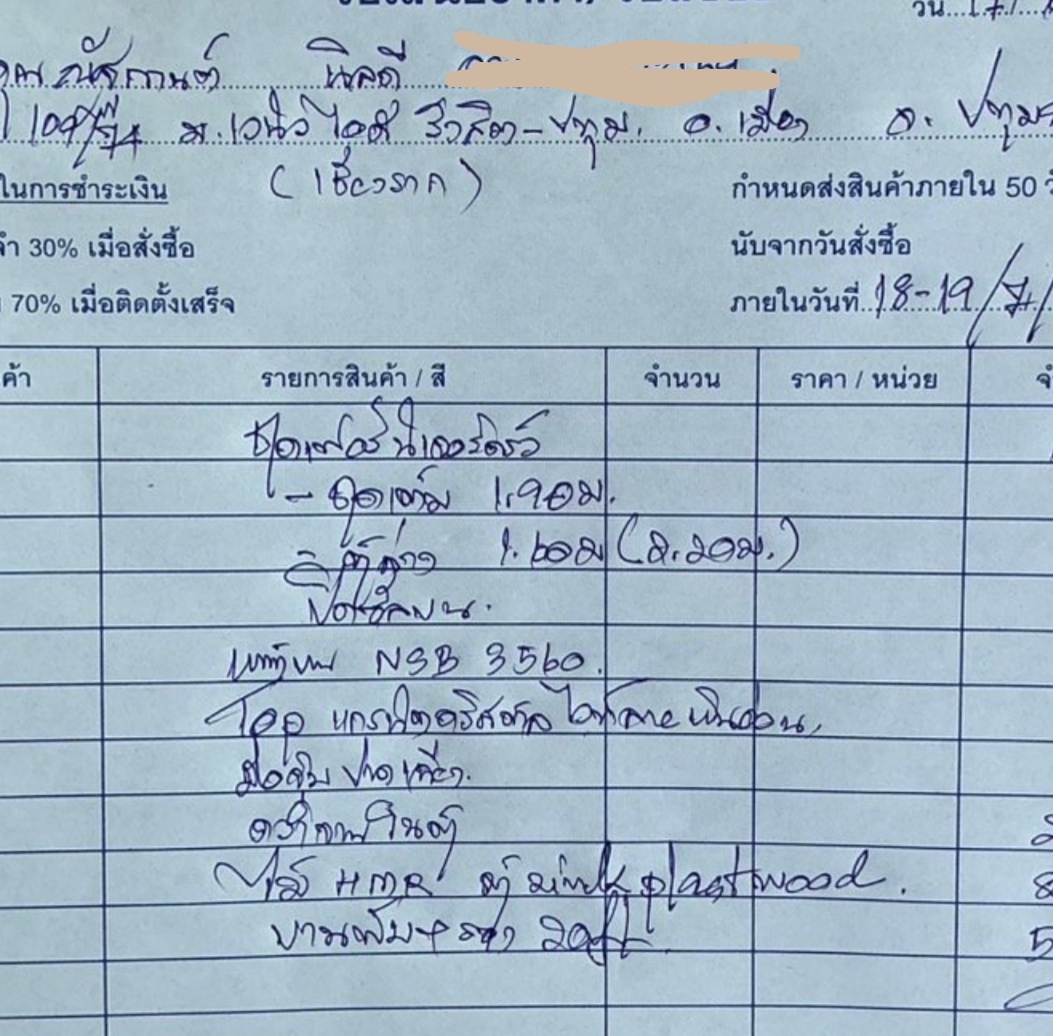 วัน 17/
คุณ ณัฐกานต์ นิลดี
109/ ม.เอนิว ไอดี รังสิต-ปทุม. อ. เมือง จ. ปทุม
(เชียงราก)
ในการชำระเงิน กำหนดส่งสินค้าภายใน 50 วั
30% เมื่อสั่งซื้อ นับจากวันสั่งซื้อ
70% เมื่อติดตั้งเสร็จ ภายในวันที่ 18-19/7/
ค้า รายการสินค้า / สี จำนวน ราคา / หน่วย จำ
ชุดเฟอร์นิเจอร์ครัว
- ชุดเต็ม 1.90ม.
- ตู้ล่าง 1.60ม (2.20ม.)
ปิดซิลบน.
หน้าบาน NSB 3560.
Top แกรนิตคริสตัล
มือจับ
ไม้ HMR ตู้ sink plastwood.
บานพับ + ราง soft